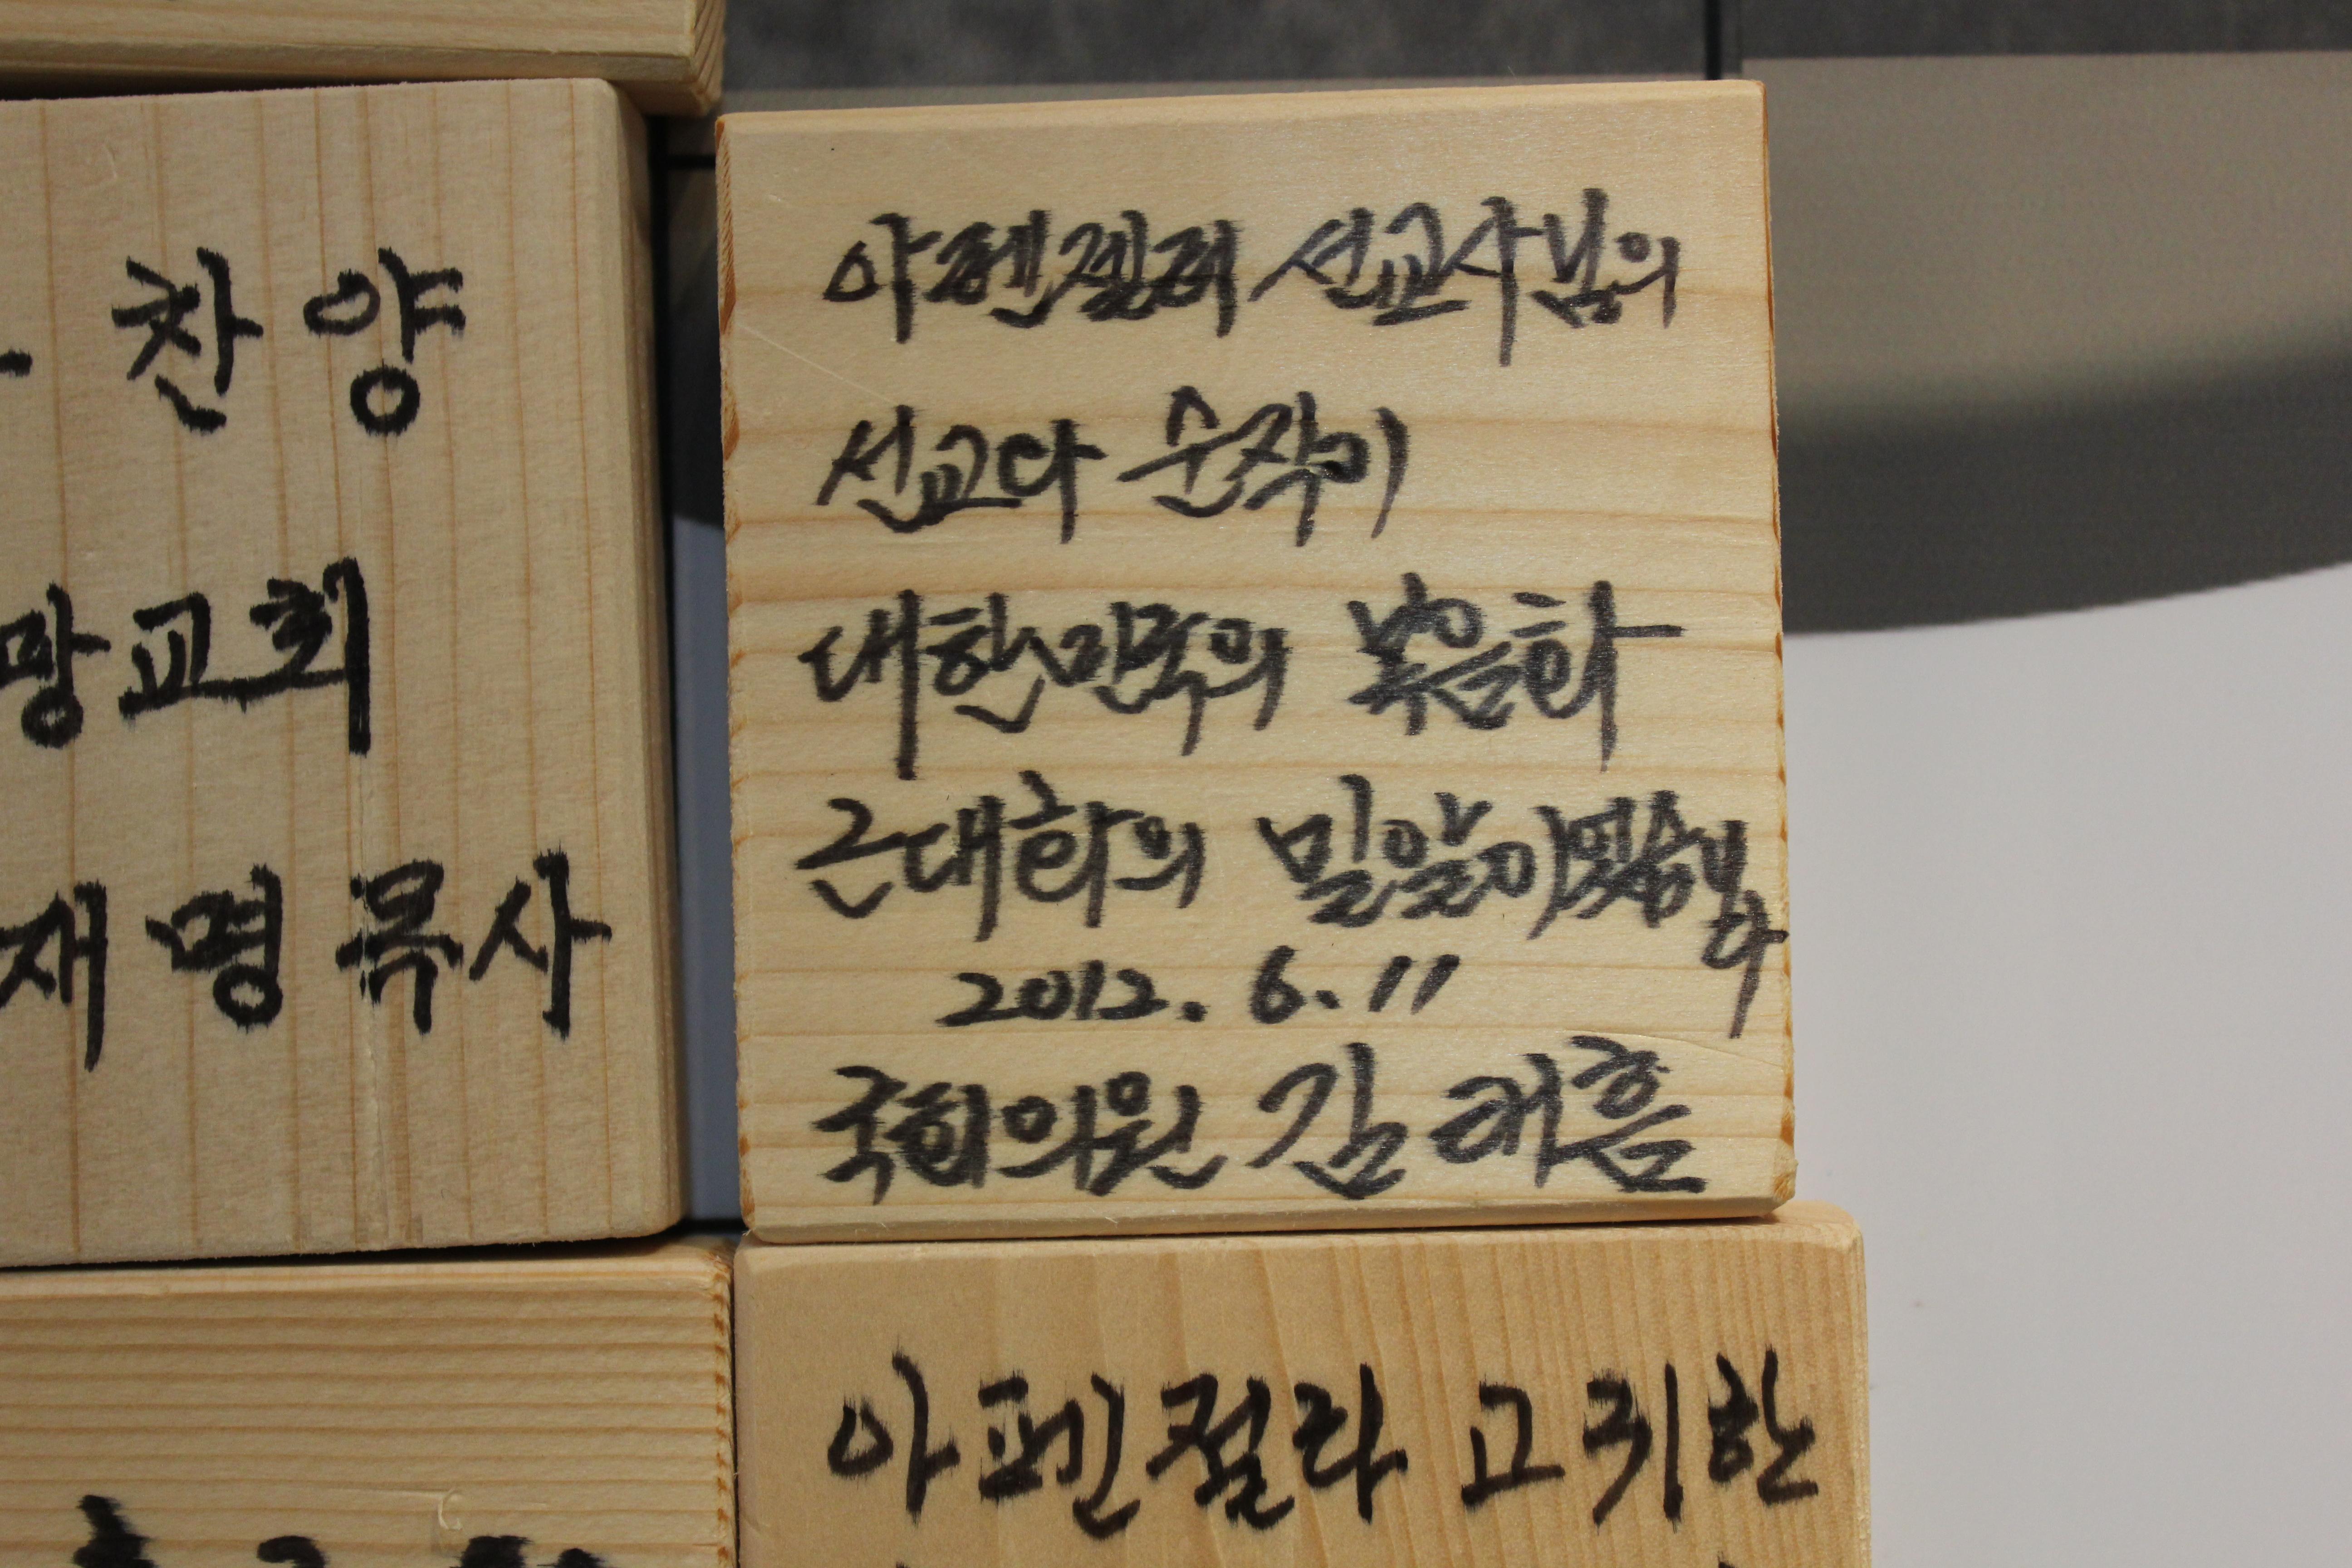 찬양
망교회
재명 목사
아펜젤러 선교사님의
선교다 순직이
대한민국의 복음화
근대화의 밀알이였습니다
2012. 6. 11
국회의원 김태흠
아펜젤라 고귀한